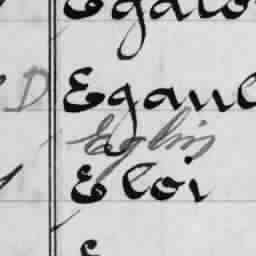 Egalo
D Egaul
Eglin
Eloi